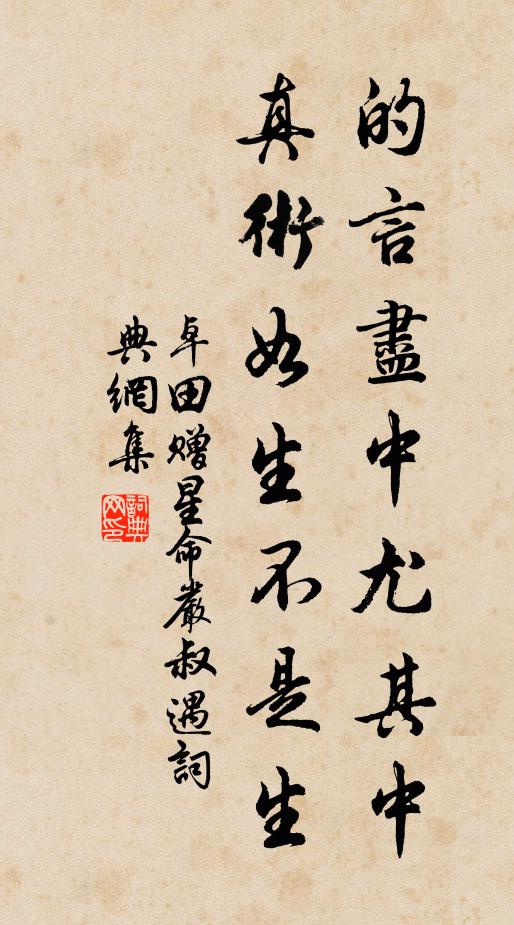 的言盡中尤其中
真術如生不是生
卓田贈星命嚴叔遇詞
典網集
詞典网印